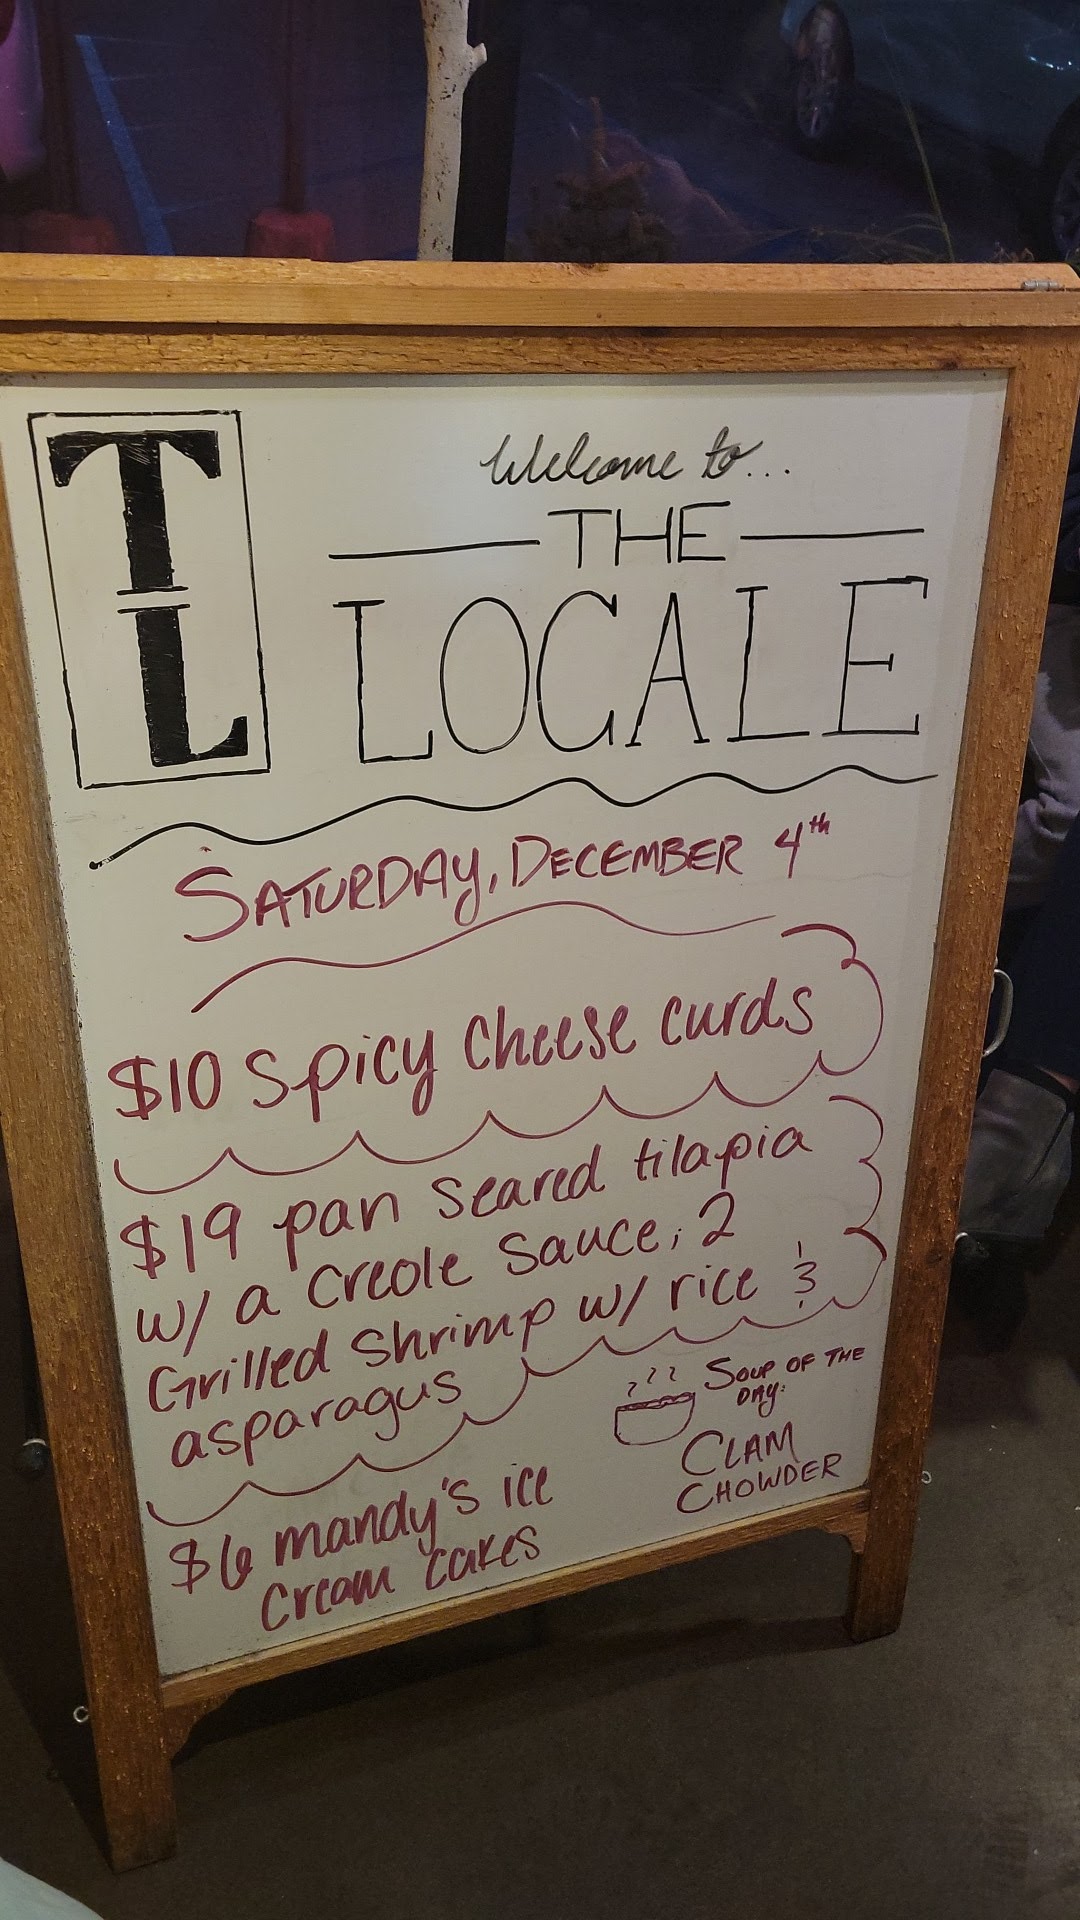 TL
Welcome to...
THE
LOCALE
SATURDAY, DECEMBER 4th
$10 Spicy Cheese curds
$19 pan Seared tilapia
w/ a Creole Sauce, 2
Grilled Shrimp w/ rice &
asparagus
SOUP OF THE
DAY:
CLAM
CHOWDER
$6 mandy's ice
Cream cakes